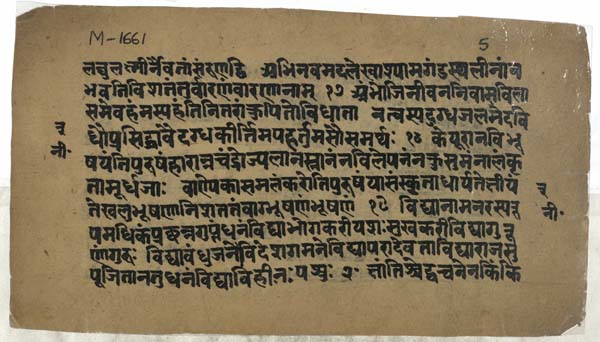 M-1661 5
लघुलक्ष्मीर्नैवतांसंरुणद्धि अभिनवमदलेखाश्यामगंडस्थलीनांन
भवतिविशतंतुर्वारणंवारणानाम् १७ अंभोजिनीवननिवासविला
समेवहंसस्पहंतिनितरांकुपितोविधाता नत्वस्पदुग्धजलभेदवि
धौप्रसिद्धांवैदग्धकीर्त्तिमपहर्त्तुमसौसमर्थः १८ केयूरानविभू
षयंतिपुरुषंहारानचंद्रोज्वलानस्नानंनविलेपनंनकुसुमंनालंकृ
तामूर्धजाः वाण्पेकासमलंकरोतिपुरुषंयासंस्कृताधार्यतेक्षीयं
तेखलुभूषणानिशततंवाग्भूषणंभूषणं १९ विद्यानामनरस्यरू
पमधिकंप्रछन्नगुप्तंधनंविद्याभोगकरीयशःसुखकरीविद्यागुरू
णांगुरुः विद्यावंधुजनोविदेशगमनेविद्यापरादेवताविद्याराजसु
पूजितानतुधनंविद्याविहीनःपशुः २० क्षांतिश्चेद्वचनेनकिंकिं
नी॰
नी॰